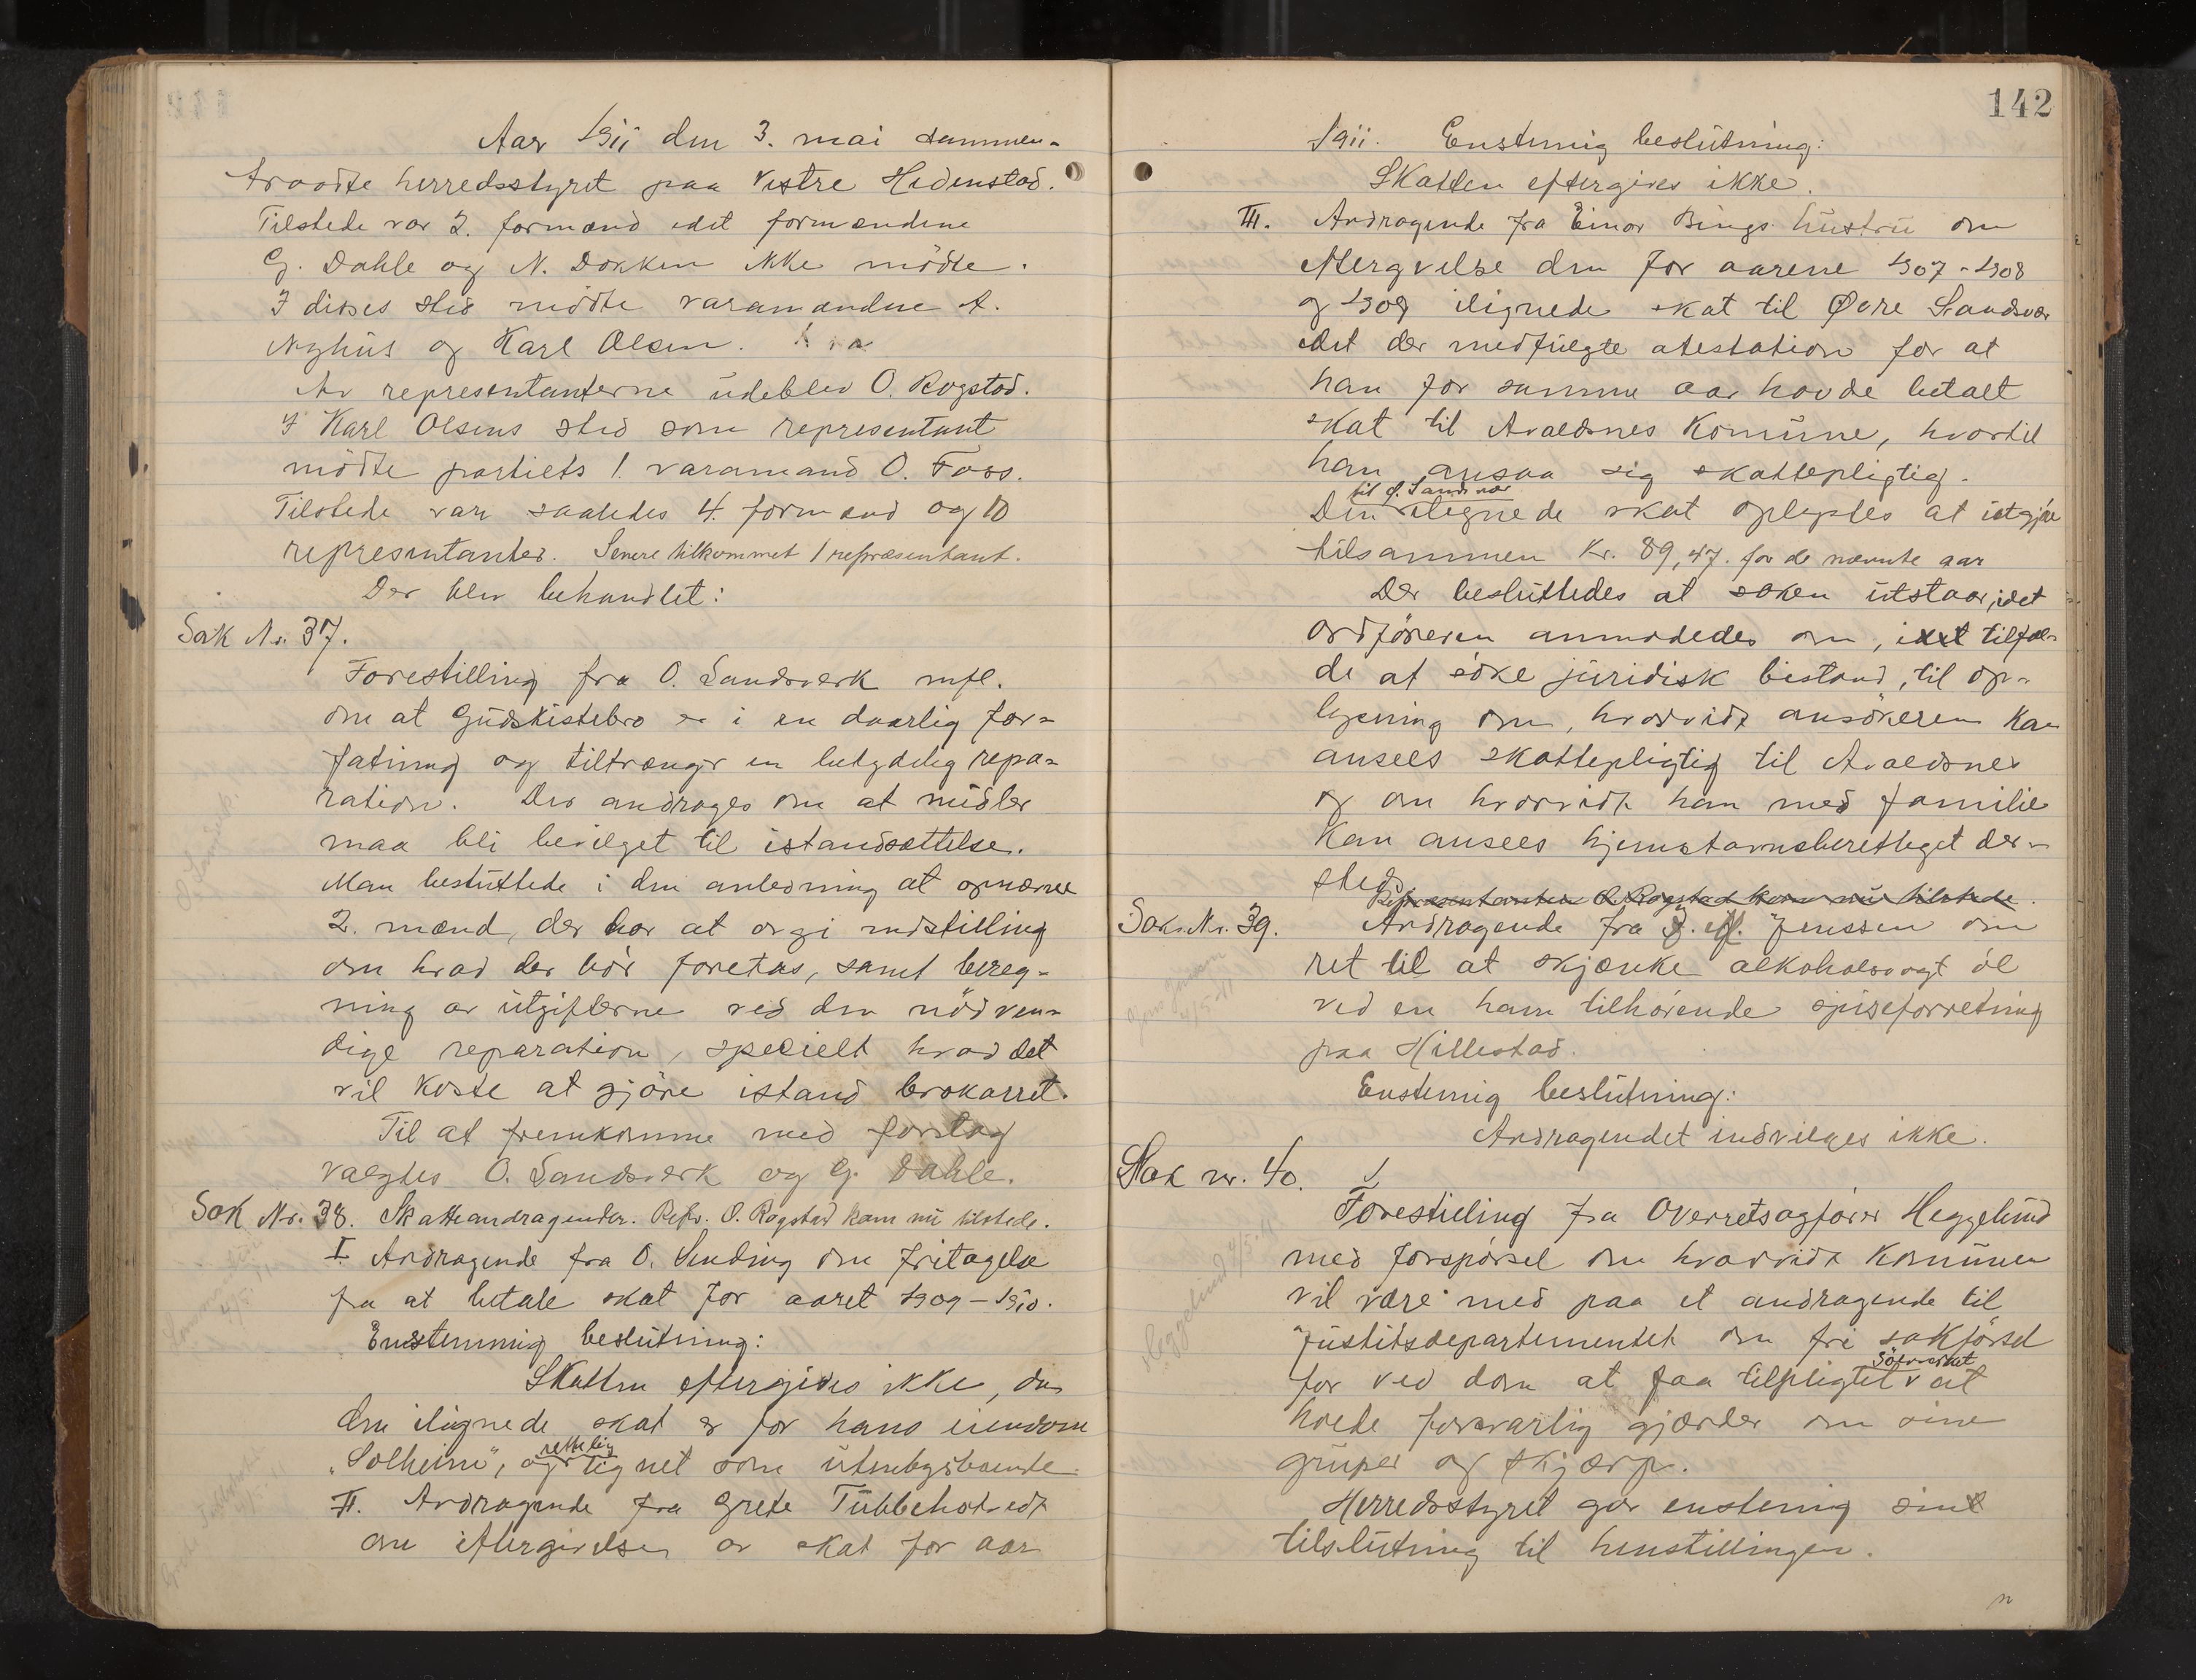 Aar 1911 den 3. mai sammen-
traadte herredsstyret paa Vestre Hedenstad.
Tilstede var 2. formænd idet formændene
G. Dahle og N. Dokken ikke mödte.
I disses sted mödte varamændene A.
Nyhus og Karl Olsen.
Av representanterne udeblev O. Rogstad.
I Karl Olsens sted som representant
mödte partiets 1. varamand O. Foss.
Tilstede var saaledes 4. formænd og 10
representanter. Senere tilkommet 1 repræsentant.
Der blev behandlet:
Sak Nr. 37.
Forestilling fra O. Sandsverk mfl.
om at Gudskistebro er i en daarlig for-
fatning og tiltrænger en betydelig repa-
ration. Der andrages om at midler
maa bli bevilget til istandsættelse.
Man besluttede i den anledning at opnævne
2. mænd, der har at avgi indstilling
om hvad der bör foretas, samt bereg-
ning av utgifterne ved den nödven-
dige reparation, specielt hvad det
vil koste at gjöre istand brokarret.
Til at fremkomme med forslag
valgtes O. Sandsverk og G. Dahle.
Sak Nr. 38. Skatteandragender. Repr. O. Rogstad kom nu tilstede.
I Andragende fra O. Sending om fritagelse
fra at betale skat for aaret 1909-1910.
Enstemmig beslutning:
Skatten eftergives ikke, da
den ilignede skat er for hans eiendom
"Solheim", og rettelig lignet som utenbygsboende
II. Andragende fra Grete Tubbehotvedt
om eftergivelse av skat for aar
142
1911. Enstemig beslutning:
Skatten eftergives ikke.
III. Andragende fra Einar Bings hustru om
eftergivelse den for aarene 1907-1908
og 1909 ilignede skat til Øvre Sandsvær
idet der medfulgte atestation for at
han for samme aar havde betalt
skat til Avaldsnes Komune, hvortil
han ansaa sig skattepligtig.
til ø. Sandsvær
Den ilignede skat oplystes at utgjöre
tilsammen Kr. 89,47. for de nævnte aar
Der besluttedes at saken utstaar, idet
ordföreren anmodedes om, i tilfæl-
de at söke juridisk bistand, til op-
lysning om, hvorvidt ansökeren kan
ansees skattepligtig til Avaldsnes
og om hvorvidt han med familie
kan ansees hjemstavnsberettiget der-
steds.
Repræsentanten O. Rogstad kom nu tilstede.
Sak. Nr. 39. Andragende fra J. M. Jenssen om
ret til at skjænke alkoholsvagt öl
ved en ham tilhörende spiseforretning
paa Hillestad.
Enstemig beslutning:
Andragendet indvilges ikke.
Sak nr. 40.
Forestilling fra Overretsagförer Heggelund
med forspörsel om hvorvidt Komunen
vil være med paa et andragende til
Justitsdepartementet om fri sakförsel
Sölvverket
for ved dom at faa tilpligtet at
holde forsvarlig gjærder om sine
gruper og skjærp.
Herredsstyret gav enstemig sin
tilslutning til henstillingen.